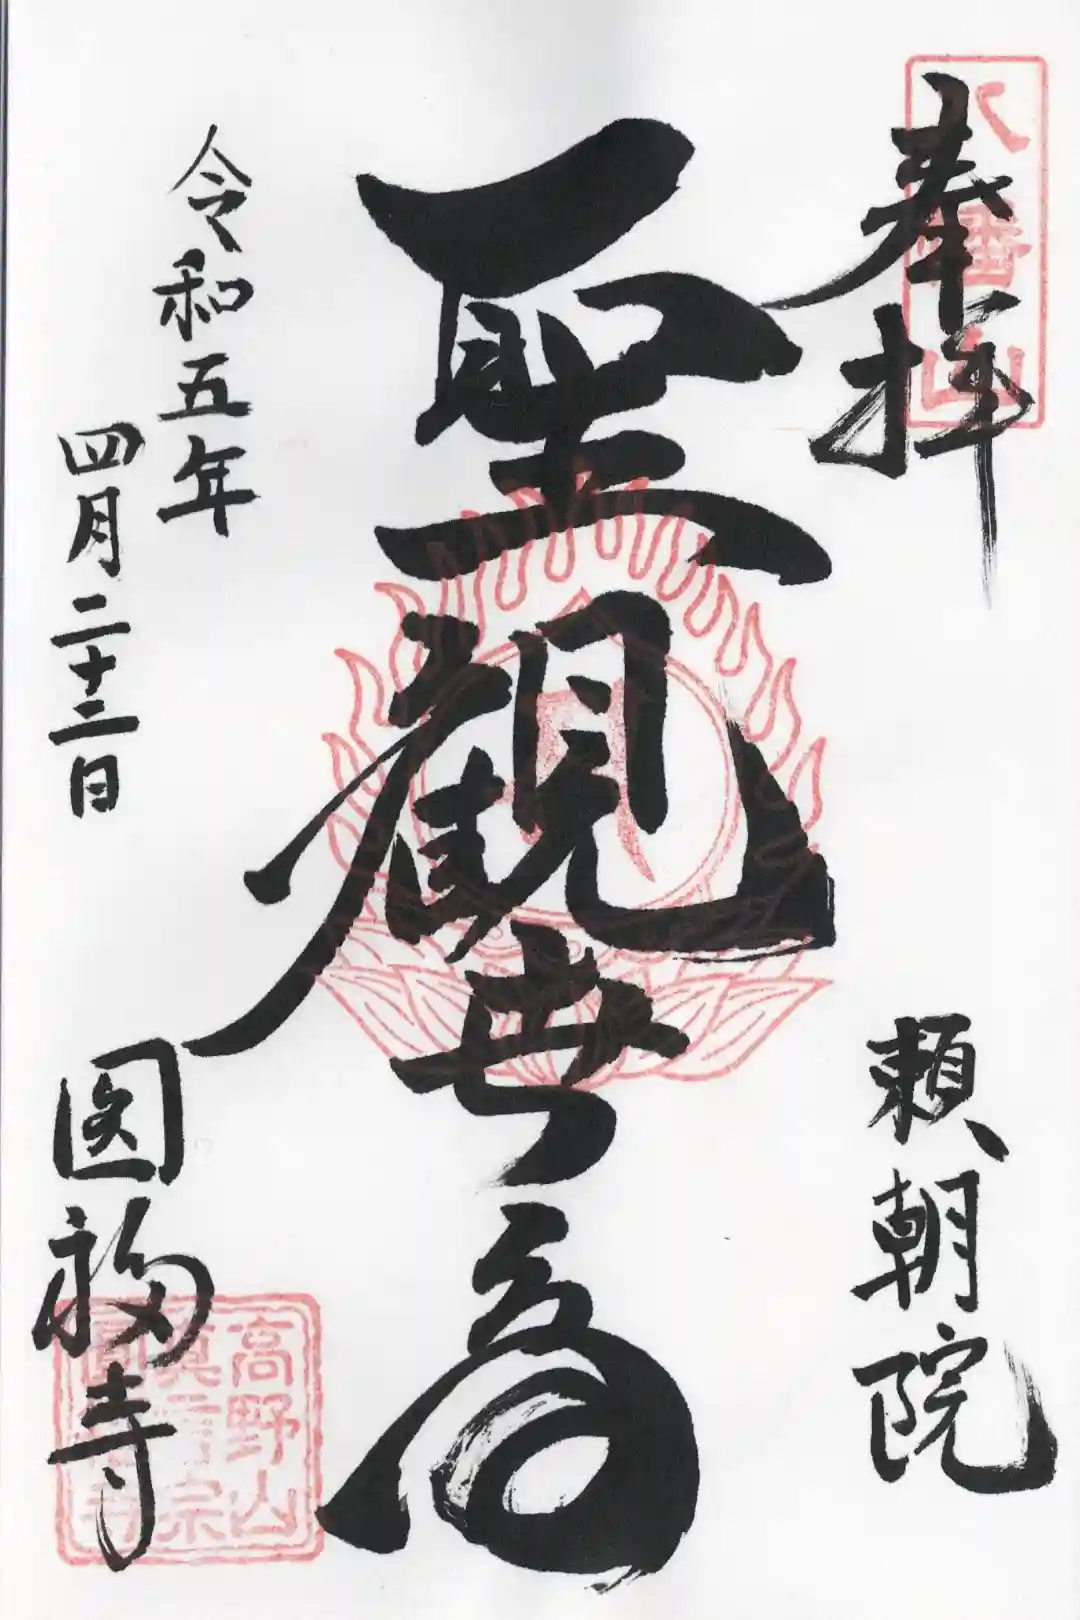 奉拝
八幡山
頼朝院
聖観世音
令和五年
四月二十二日
圓福寺
高野山
真言宗
圓福寺